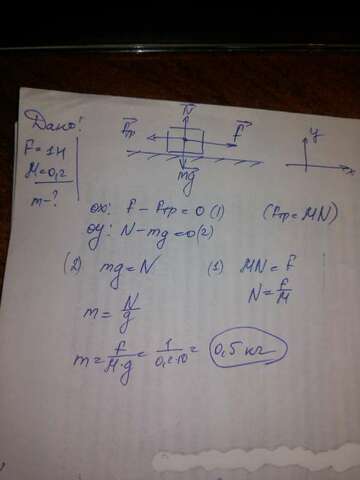 Дано:
F = 1Н
μ = 0,2
m - ?
N
Fтр
F
mg
y
x
ox: F - Fтр = 0 (1) (Fтр = μN)
oy: N - mg = 0 (2)
(2) mg = N (1) μN = F
m = N/g N = F/μ
m = F/μ·g = 1/0,2·10 = 0,5 кг